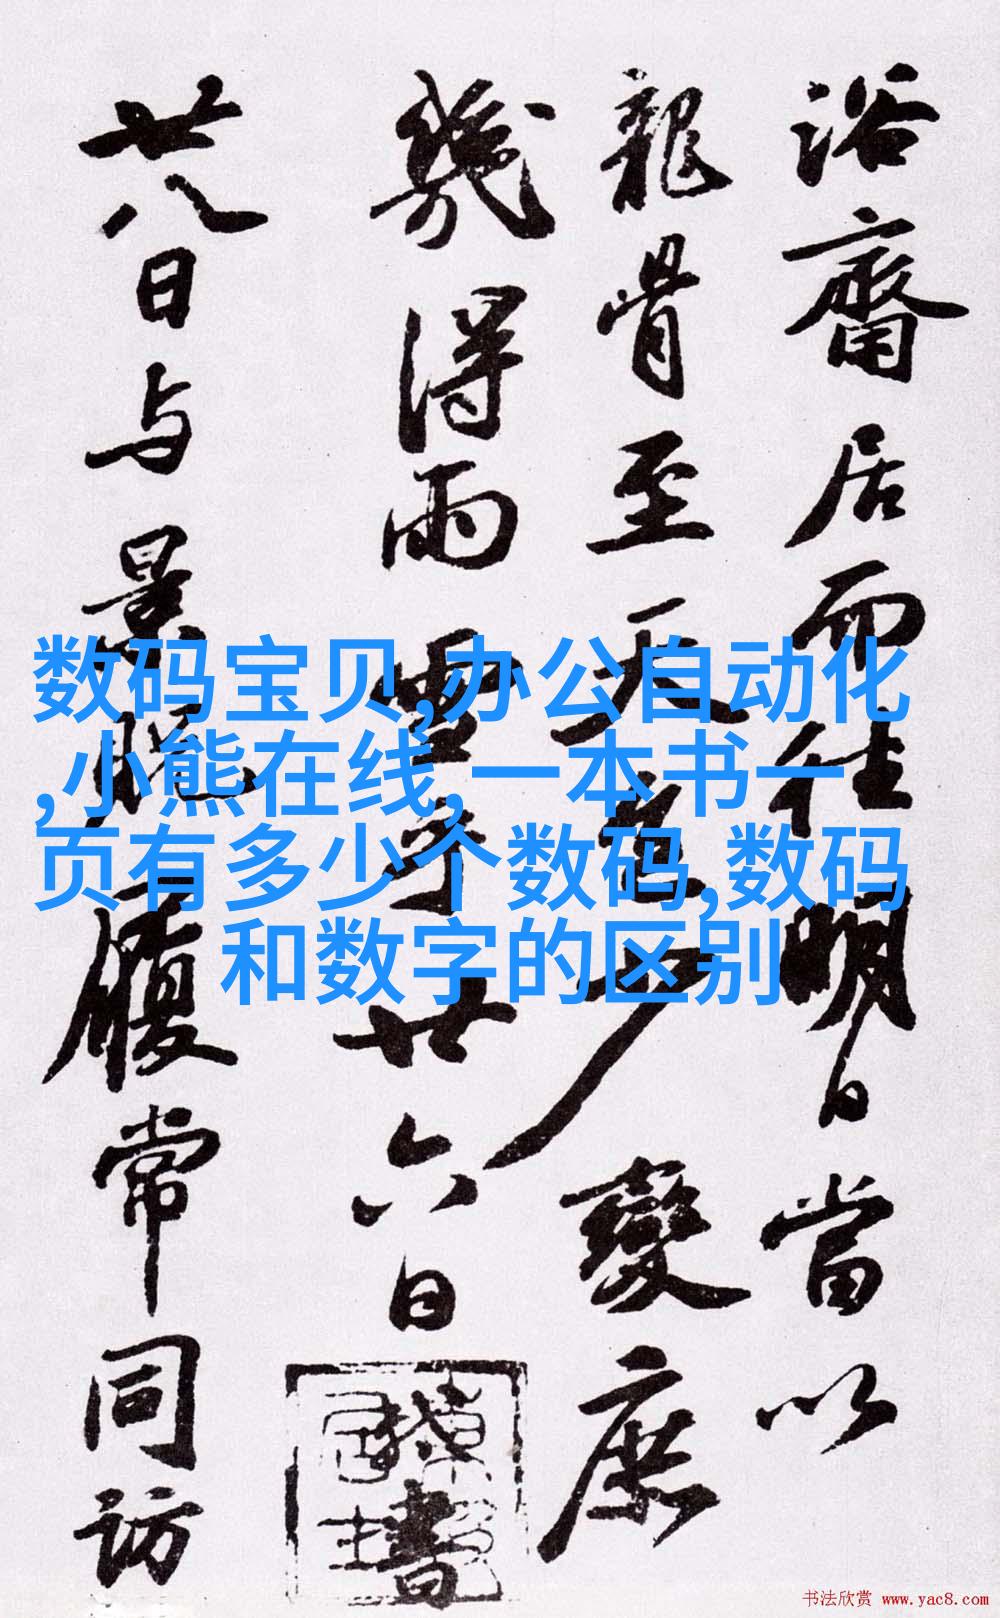 浴齋居而往明日當以
龍骨至天少變庶
幾得雨雪乎廿六日書
廿八日与景貺履常同訪
数码宝贝,办公自动化
,小熊在线,一本书一
页有多少个数码,数码
和数字的区别
书法欣赏 www.yac8.com